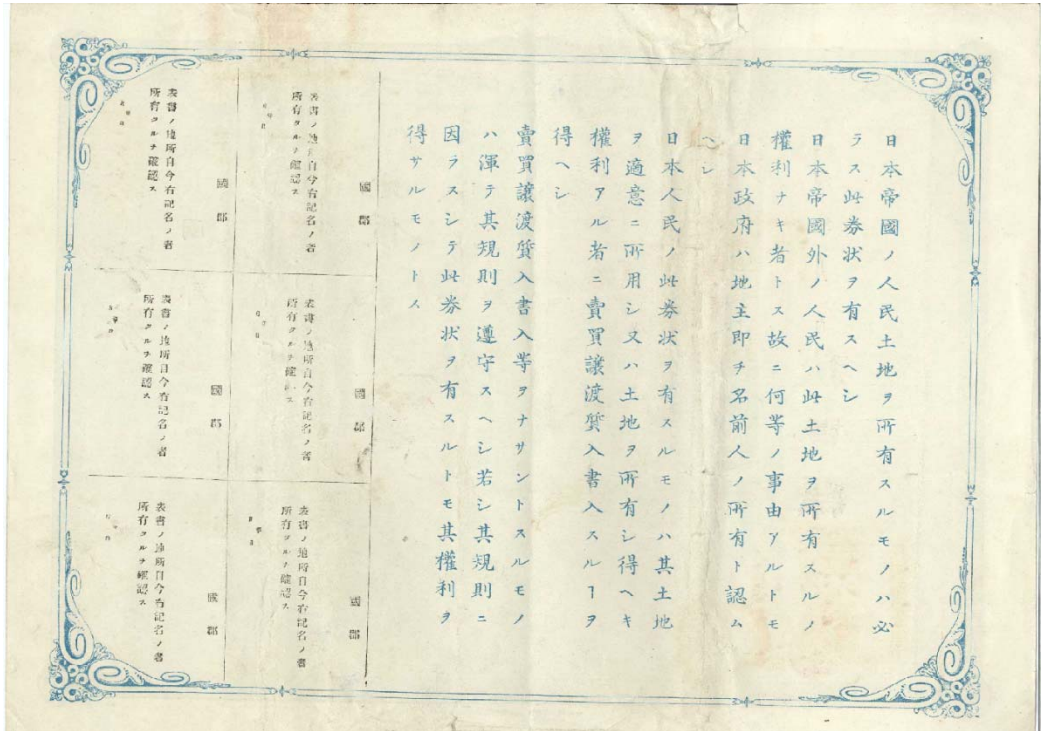 日本帝國ノ人民土地ヲ所有スルモノハ必
ラス此券状ヲ有スヘシ
日本帝國外ノ人民ハ此土地ヲ所有スルノ
權利ナキ者トス故ニ何等ノ事由アルトモ
日本政府ハ地主即チ名前人ノ所有ト認ム
ヘシ
日本人民ノ此券状ヲ有スルモノハ其土地
ヲ適意ニ所用シ又ハ土地ヲ所有シ得ヘキ
權利アル者ニ賣買譲渡質入書入スルヿヲ
得ヘシ
賣買譲渡質入書入等ヲナサントスルモノ
ハ渾テ其規則ヲ遵守スヘシ若シ其規則ニ
因ラスシテ此券状ヲ有スルトモ其權利ヲ
得サルモノトス
表書ノ地所自今右記名ノ者
所有タルヲ確認ス
國郡
表書ノ地所自今右記名ノ者
所有タルヲ確認ス
國郡
表書ノ地所自今右記名ノ者
所有タルヲ確認ス
國郡
表書ノ地所自今右記名ノ者
所有タルヲ確認ス
國郡
表書ノ地所自今右記名ノ者
所有タルヲ確認ス
國郡
表書ノ地所自今右記名ノ者
所有タルヲ確認ス
國郡